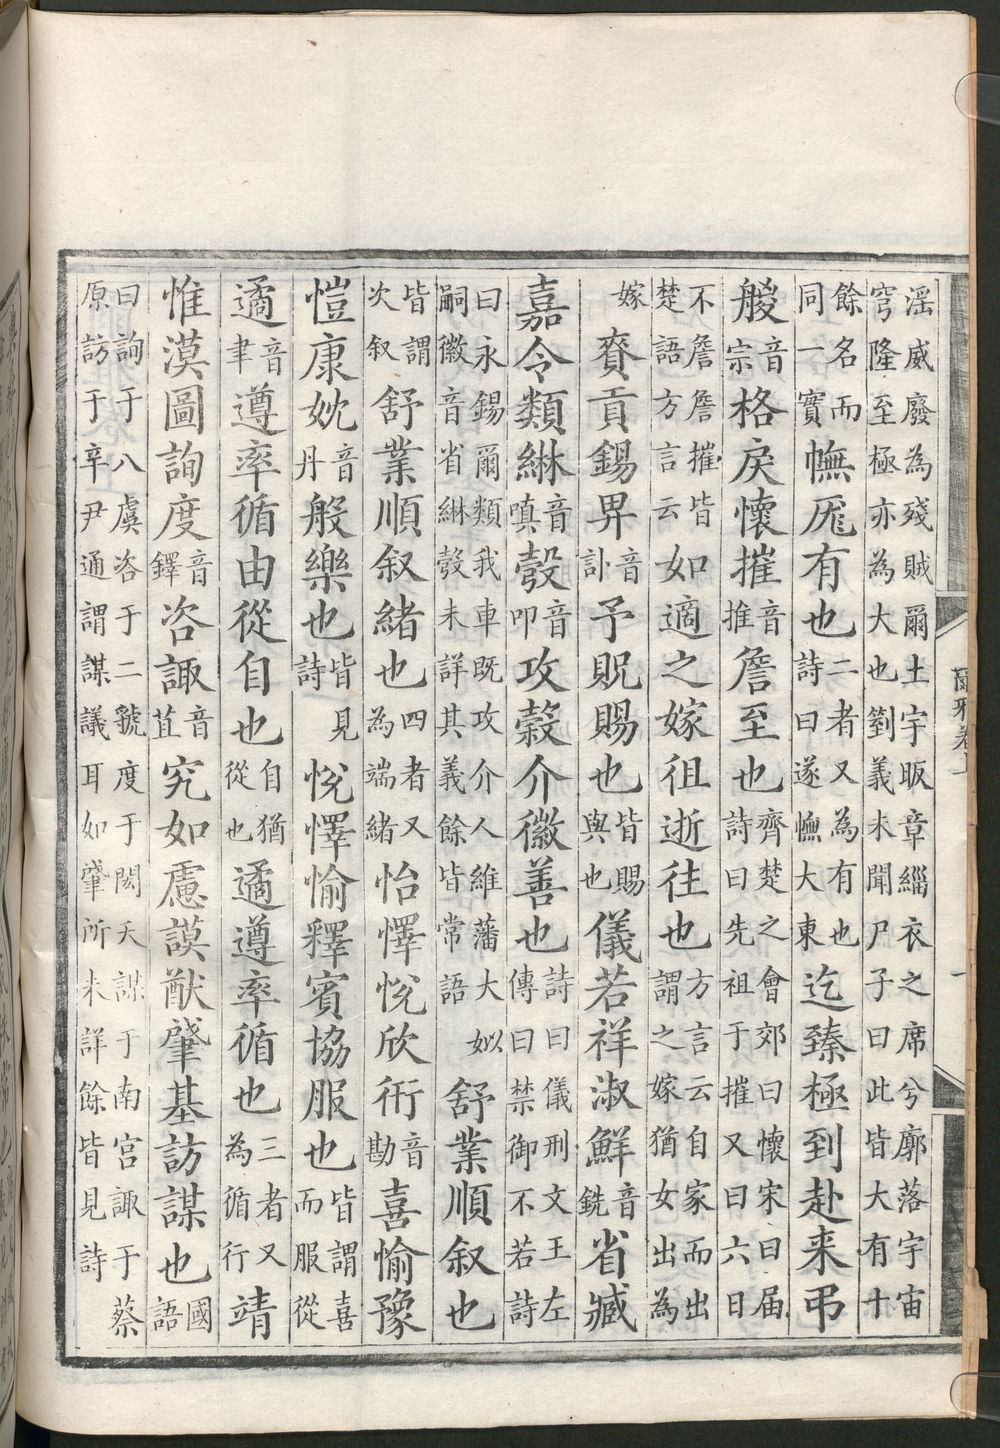 淫威廢為殘賊爾土宇昄章緇衣之席兮廓落宇宙穹隆至極亦為大也箌義未聞尸子曰此皆大有十
餘名而同一實幠厖有也二者又為有也詩曰遂幠大東迄臻極到赴来弔
艐音宗格戾懷摧音推詹至也齊楚之會郊曰懷宋曰届詩曰先祖于摧又曰六日
不詹詹摧皆楚語方言云如適之嫁徂逝往也方言云自家而出謂之嫁猶女出為
嫁賚貢錫畀音訃予貺賜也皆賜與也儀若祥淑鮮音銑省臧
嘉令類綝音嗔彀音叩攻穀介徽善也詩曰儀刑文王左傳曰禁御不若詩
曰永錫爾類我車既攻介人維藩大姒嗣徽音省綝彀未詳其義餘皆常語舒業順叙也
皆謂次叙舒業順叙緒也四者又為端緒怡懌悅欣衎音勘喜愉豫
愷康妉音丹般樂也皆見詩悅懌愉釋賓協服也皆謂喜而服從
遹音聿遵率循由從自也自猶從也遹遵率循也三者又為循行靖
惟漠圖詢度音鐸咨諏音苴究如慮謨猷肇基訪謀也國語
曰詢于八虞咨于二虢度于閎夭謀于南宮諏于蔡原訪于辛尹通謂謀議耳如肇所未詳餘皆見詩